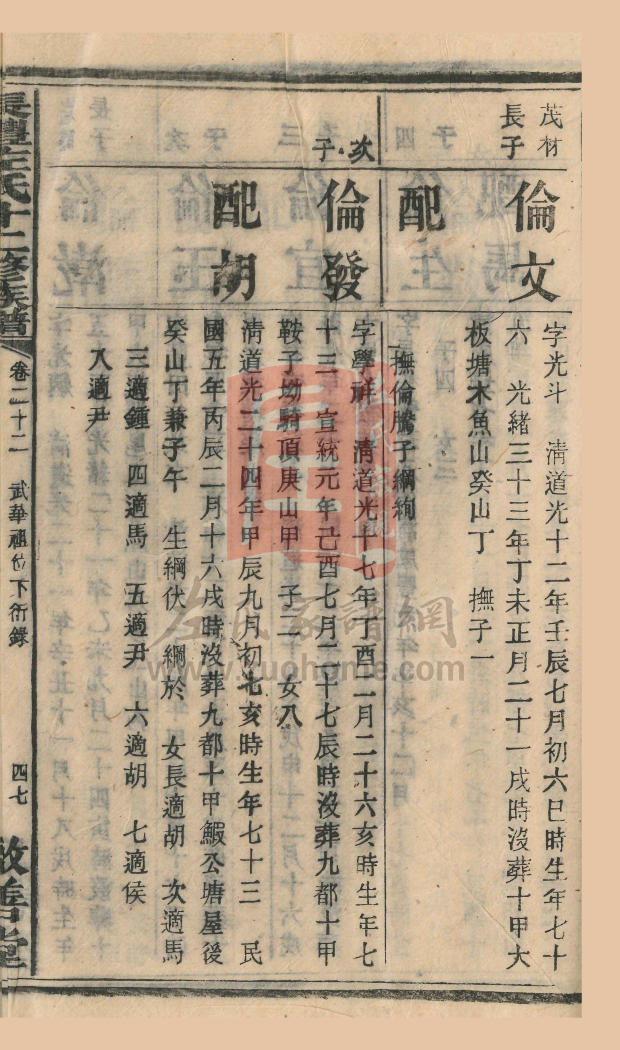 茂材
長子
倫文
字光斗 清道光十二年壬辰七月初六巳時生年七十
六 光緒三十三年丁未正月二十一戌時沒葬十甲大
板塘木魚山癸山丁 撫子一
配
撫倫騰子綱絢
次子
倫發
字學祥 清道光十七年丁酉二月二十六亥時生年七
十三 宣統元年己酉七月二十七辰時沒葬九都十甲
鞍子坳騎頂庚山甲 子二 女八
配胡
清道光二十四年甲辰九月初七亥時生年七十三 民
國五年丙辰二月十六戌時沒葬九都十甲鰕公塘屋後
癸山丁兼子午 生綱伏 綱於 女長適胡 次適馬
三適鍾 四適馬 五適尹 六適胡 七適侯
八適尹
左氏十二修族譜
卷二十二
武華祖位下衍錄
四七
敬善堂
左氏家譜網
www.zuohome.com